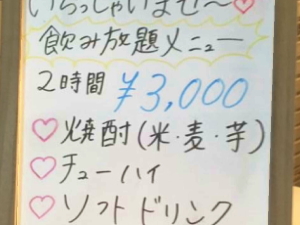 いらっしゃいませ〜♡
飲み放題メニュー
2時間 ¥3,000
♡焼酎(米・麦・芋)
♡チューハイ
♡ソフトドリンク